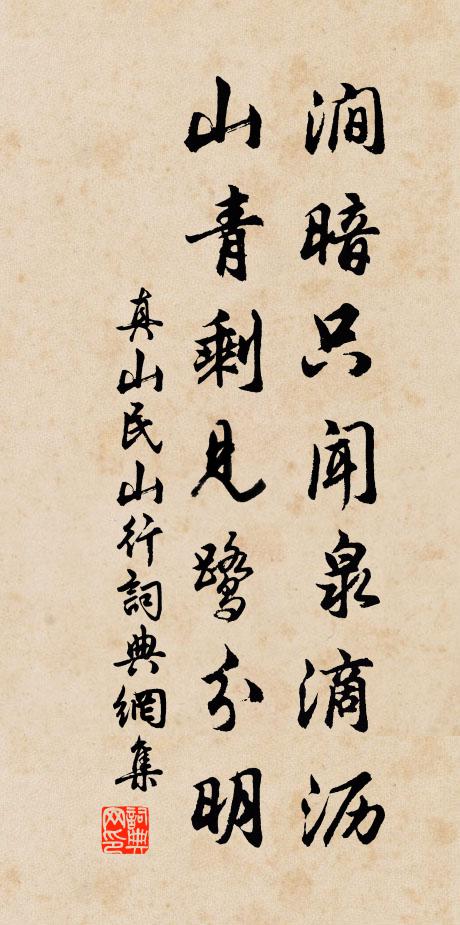 涧暗只闻泉滴沥
山青剩见鹭分明
真山民山行詞典網集
詞典网印